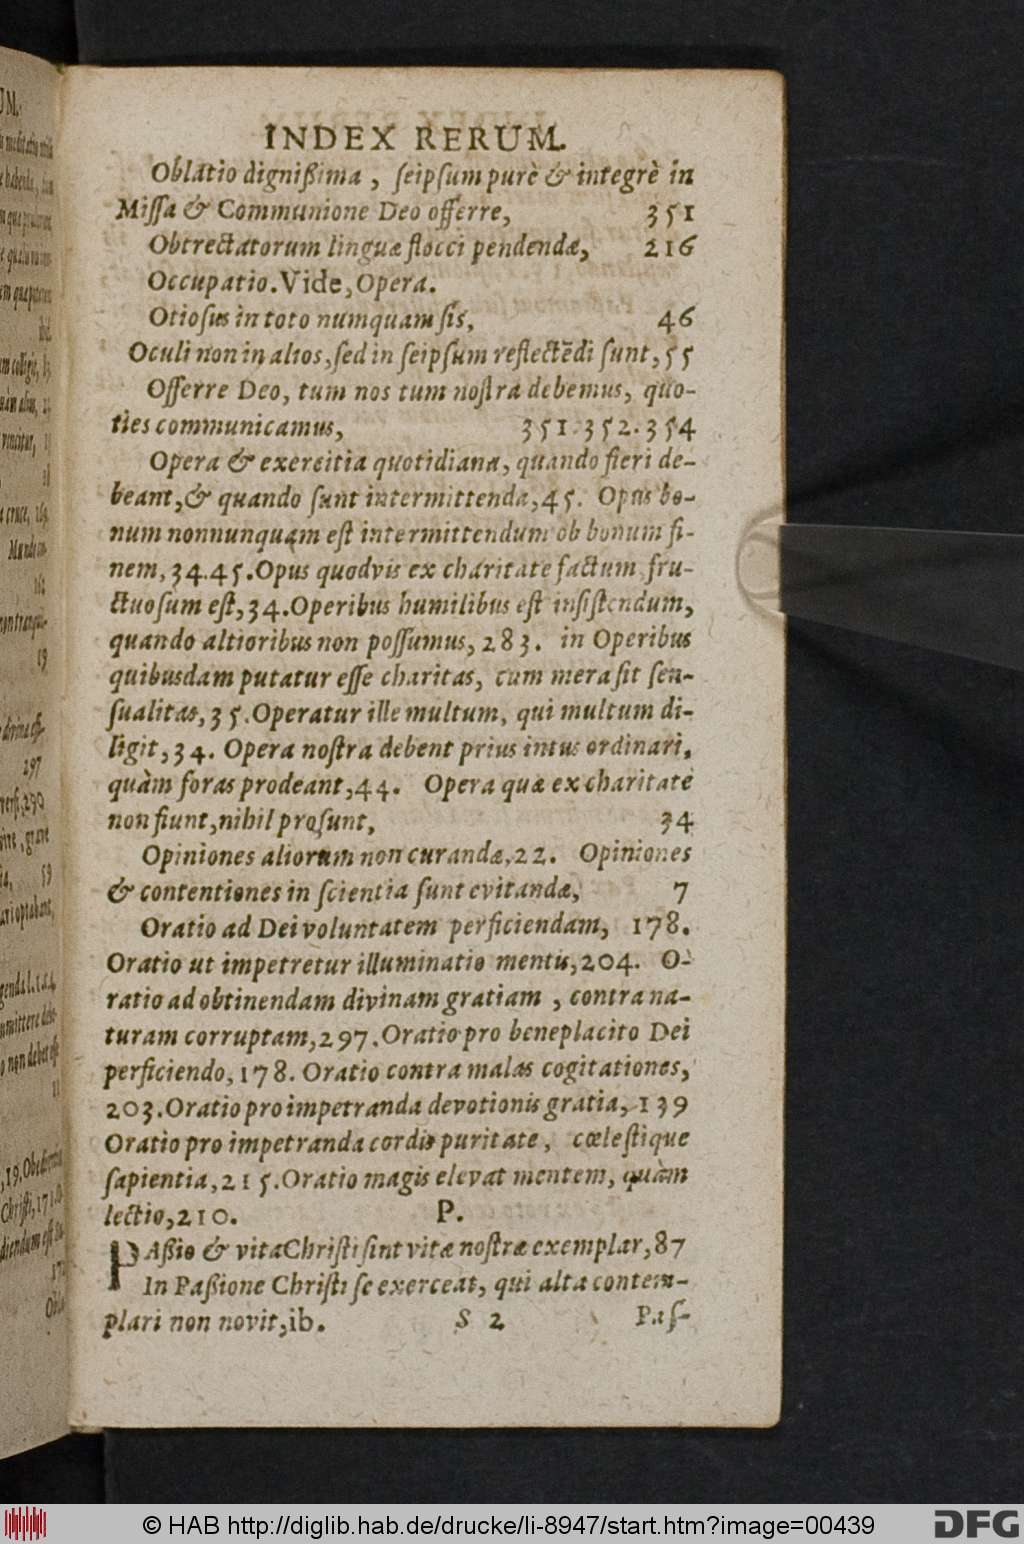 INDEX RERUM.
Oblatio dignißima, ſeipſum purè & integrè in
Miſſa & Communione Deo offerre, 351
Obtrectatorum linguæ flocci pendendæ, 216
Occupatio. Vide, Opera.
Otioſus in toto numquam ſis, 46
Oculi non in alios, ſed in ſeipſum reflectẽdi ſunt, 55
Offerre Deo, tum nos tum noſtra debemus, quo-
ties communicamus, 351.352.354
Opera & exercitia quotidiana, quando fieri de-
beant, & quando ſunt intermittenda, 45. Opus bo-
num nonnunquam eſt intermittendum ob bonum fi-
nem, 34.45. Opus quodvis ex charitate factum fru-
ctuoſum eſt, 34. Operibus humilibus eſt inſiſtendum,
quando altioribus non poſſumus, 283. in Operibus
quibusdam putatur eſſe charitas, cum mera ſit ſen-
ſualitas, 35. Operatur ille multum, qui multum di-
ligit, 34. Opera noſtra debent prius intus ordinari,
quàm foras prodeant, 44. Opera quæ ex charitate
non fiunt, nihil proſunt, 34
Opiniones aliorum non curandæ, 22. Opiniones
& contentiones in ſcientia ſunt evitandæ, 7
Oratio ad Dei voluntatem perficiendam, 178.
Oratio ut impetretur illuminatio mentis, 204. O-
ratio ad obtinendam divinam gratiam, contra na-
turam corruptam, 297. Oratio pro beneplacito Dei
perficiendo, 178. Oratio contra malas cogitationes,
203. Oratio pro impetranda devotionis gratia, 139
Oratio pro impetranda cordis puritate, cœleſtique
ſapientia, 215. Oratio magis elevat mentem, quàm
lectio, 210. P.
PAßio & vita Chriſti ſint vitæ noſtræ exemplar, 87
In Paßione Chriſti ſe exerceat, qui alta contem-
plari non novit, ib. S 2 Paſ-
© HAB http://diglib.hab.de/drucke/li-8947/start.htm?image=00439
DFG